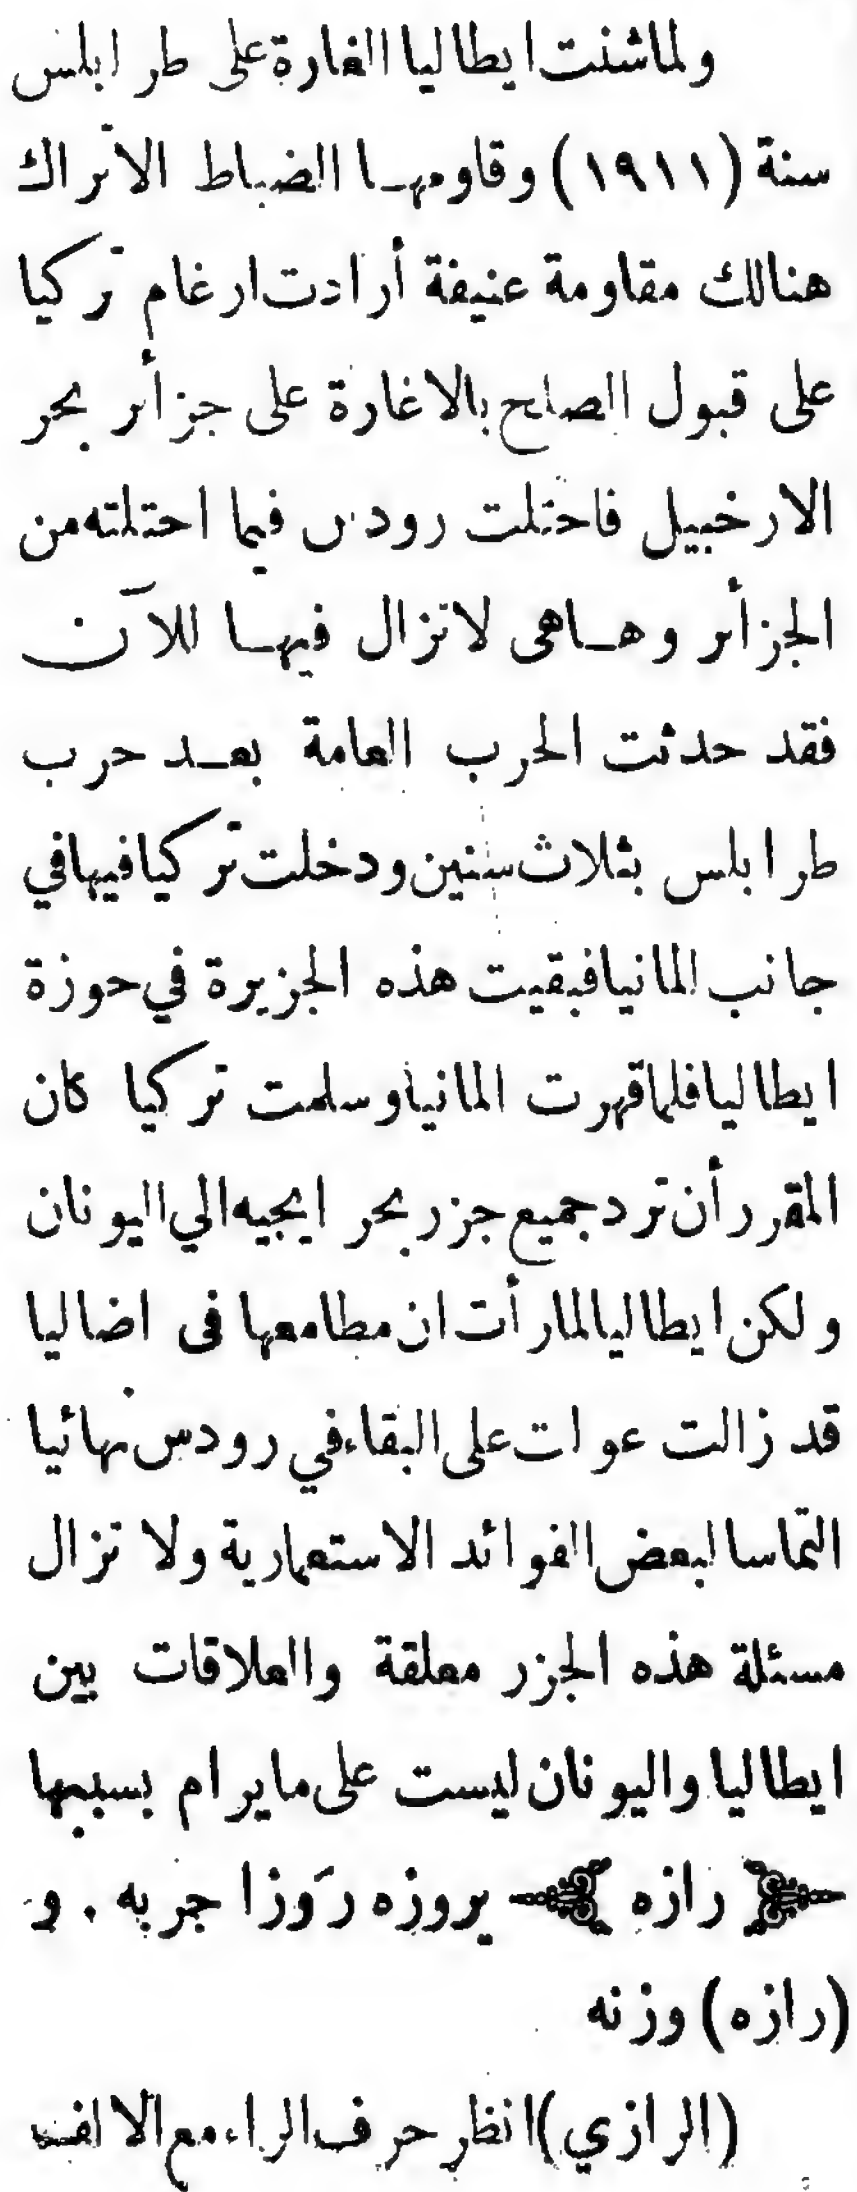 ولما شنت ايطاليا الغارة على طرابلس
سنة (١٩١١) وقاومها الضباط الاتراك
هنالك مقاومة عنيفة أرادت ارغام تركيا
على قبول الصلح بالاغارة على جزأر بحر
الارخبيل فاحتلت رودس فيما احتلته من
الجزأر وهاهى لاتزال فيها للآن
فقد حدثت الحرب العامة بعد حرب
طرابلس بثلاث سنين ودخلت تركيا فيها في
جانب المانيا فبقيت هذه الجزيرة في حوزة
ايطاليا فلما قهرت المانيا وسلمت تركيا كان
المقرر أن ترد جميع جزر بحر ايجيه الي اليونان
ولكن ايطاليا لما رأت ان مطامعها فى اضاليا
قد زالت عوات على البقاء في رودس نهائيا
التماسا لبعض الفوائد الاستعمارية ولا تزال
مسئلة هذه الجزر معلقة والعلاقات بين
ايطاليا واليونان ليست على مايرام بسببها
رازه يروزه رَوزا جربه . و
(رازه) وزنه
(الرازي) انظر حرف الراء مع الالف